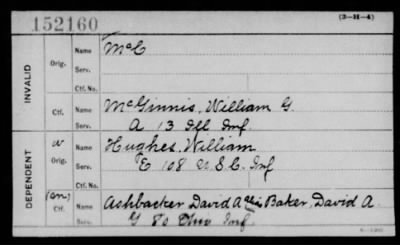 152160
(3-H-4)
INVALID
Orig.
Name McC
Serv.
Ctf. No.
Ctf.
Name McGinnis, William G.
Serv. A 13 Ill Inf.
DEPENDENT
W
Orig.
Name Hughes, William
Serv. E 108 U.S.C. Inf
Ctf. No.
Ctf.
Name Ashbacker David A alias Baker, David A.
Serv. G 80 Ohio Inf.